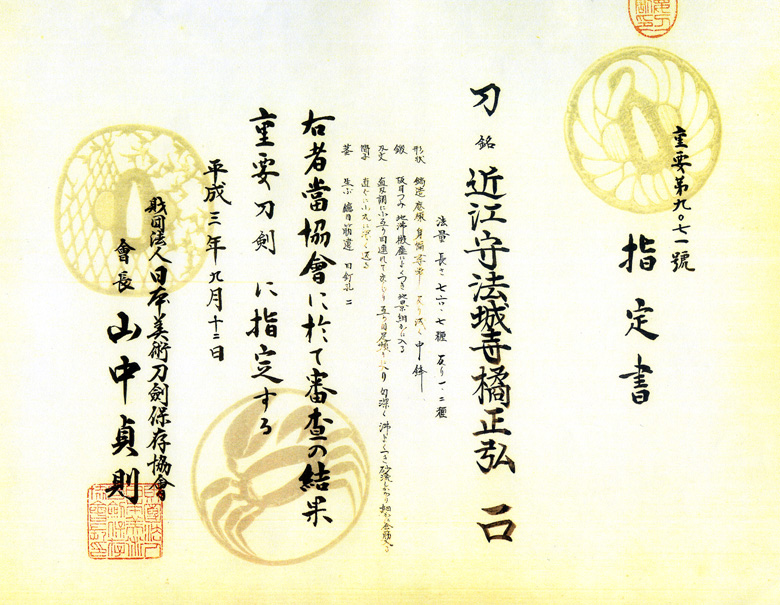 重要第九〇七一號
指定書
刀 銘 近江守法城寺橘正弘 一口
法量 長さ 七六・七糎 反り 一・二糎
形状 鎬造 庵棟 身幅尋常 反り浅く 中鋒
鍛 板目つみ 地沸微塵によくつき 地景細かに入る
刃文 直刃調に小互の目連れて交じり 互の目足頻りに入り 匂深く 沸よくつき 砂流しかかり 細かに金筋入る
帽子 直ぐに小丸に深く返る
茎 生ぶ 鑢目筋違 目釘孔二
右者當協會に於て審査の結果
重要刀剣に指定する
平成三年九月十二日
財団法人日本美術刀劍保存協會
會長 山中貞則